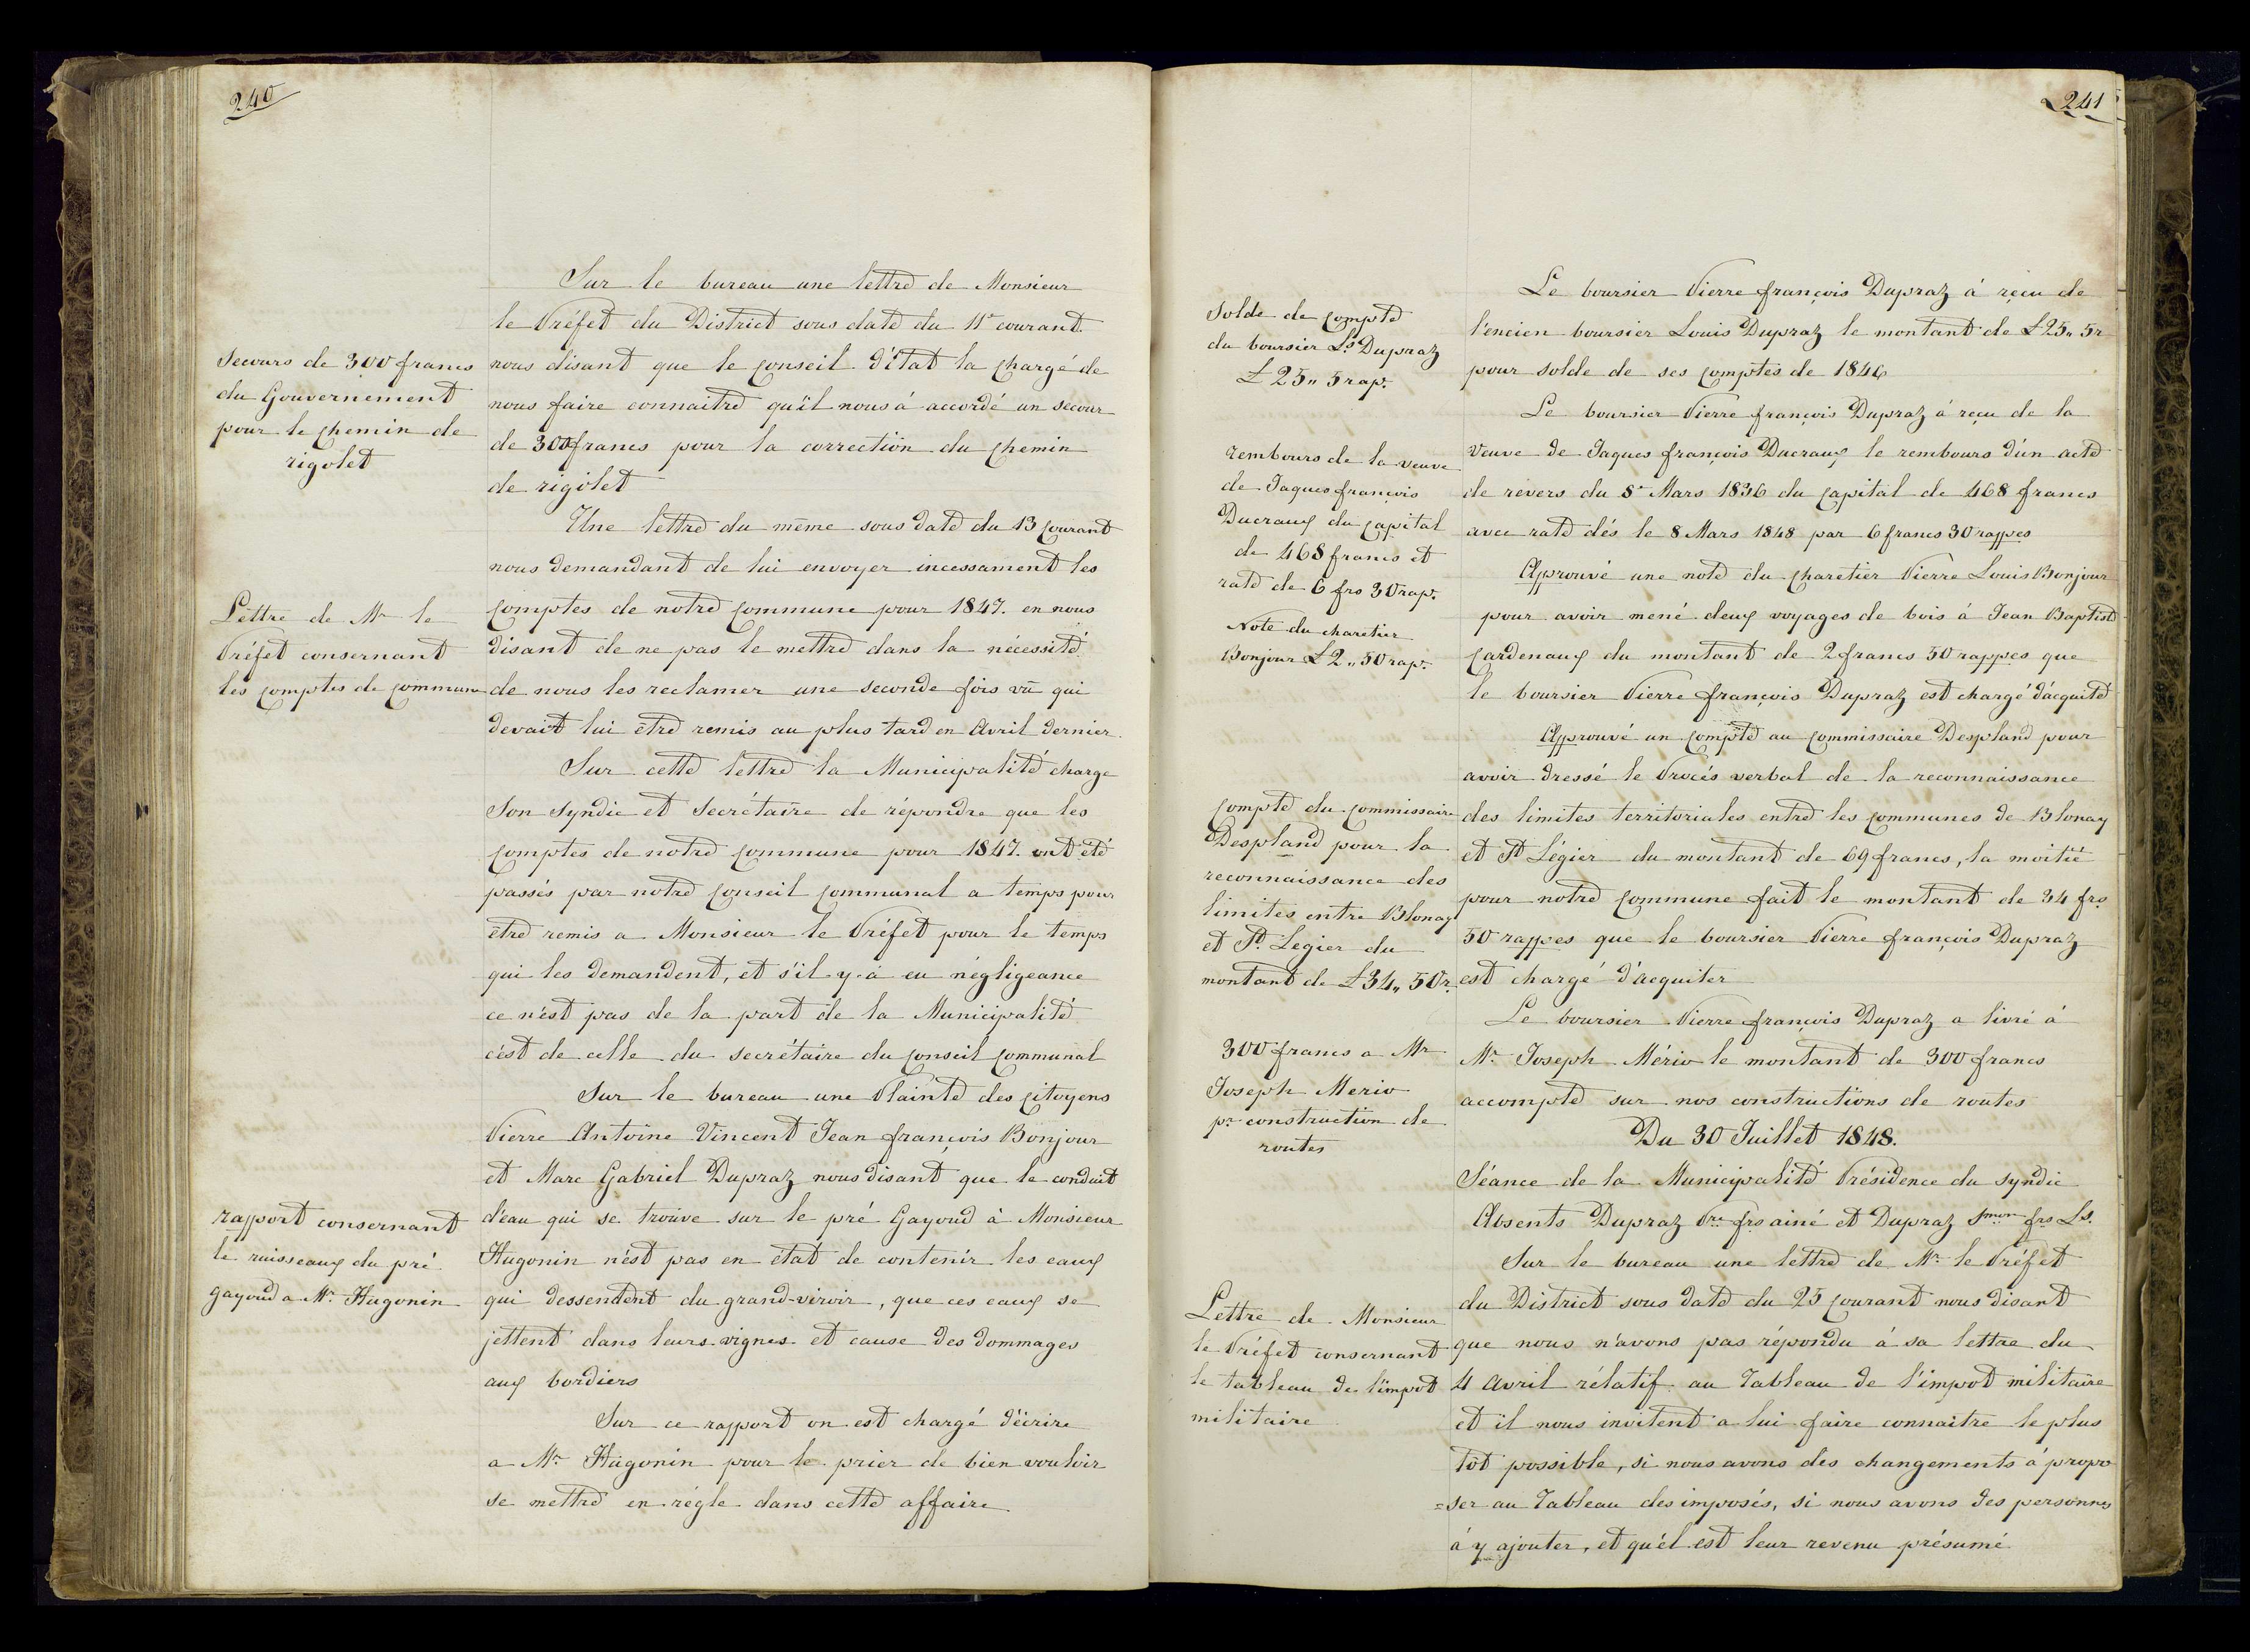 240
Secours de 300 francs
du Gouvernement
pour le chemin de
rigolet
Lettre de Mr le
Préfet consernant
les comptes de commune
rapport consernant
le ruisseaux du pré
gayoud a Mr. Hugonin
Sur le bureau une lettre de Monsieur
le Préfet du District sous date du 11e courant
nous disant que le conseil d'état la chargé de
nous faire connaitre qu'il nous á accordé un secour
de 300 francs pour la correction du chemin
de rigolet
Une lettre du même sous date du 13 courant
nous demandant de lui envoyer incessament les
comptes de notre commune pour 1847. en nous
disant de ne pas le mettre dans la nécessité
de nous les reclamer une seconde fois vû qui
devait lui être remis au plus tard en Avril dernier.
Sur cette lettre la Municipalité charge
Son syndic et Secrétaire de répondre que les
comptes de notre commune pour 1847. ont été
passés par notre conseil communal a temps pour
être remis a Monsieur le Préfet pour le temps
qui les demandent, et s'il-y-à eu négligeance
ce n'est pas de la part de la Municipalité
c'est de celle du secrétaire du conseil communal
Sur le bureau une Plainte des citoyens
Pierre Antoine Vincent Jean françois Bonjour
et Marc Gabriel Dupraz nous disant que le conduit
d'eau qui se trouve sur le pré Gayoud à Monsieur
Hugonin n'est pas en état de contenir les eaux
qui dessendent du grand-viroir, que ces eaux se
jettent dans leurs vignes et cause des dommages
aux bordiers
Sur ce rapport on est chargé d'écrire
a Mr Hugonin pour le prier de bien vouloir
se mettre en régle dans cette affaire
241
Solde de compte
du boursier Ls Dupraz
£ 25 " 5 rap.
rembours de la veuve
de Jaques francois
Ducraux du capital
de 468 francs et
rate de 6 frs 30 rap.
Note du charetier
Bonjour £ 2 " 50 rap.
compte du commissaire
Despland pour la
reconnaissance des
limites entre Blonay
et St. Legier du
montant de £ 34 " 50 r.
300 francs a Mr
Joseph Merio
pr construction de
routes
Lettre de Monsieur
le Préfet consernant
le tableau de l'impot
militaire
Le boursier Pierre françois Dupraz á reçu de
l'encien boursier Louis Dupraz le montant de £ 25 " 5 r
pour solde de ses comptes de 1846
Le boursier Pierre françois Dupraz á reçu de la
veuve de Jaques françois Ducraux le rembours d'un acte
de revers du 8e Mars 1836 du capital de 468 francs
avec rate dés le 8 Mars 1848 par 6 francs 30 rappes
Approuvé une note du charetier Pierre Louis Bonjour
pour avoir mené deux voyages de bois á Jean Baptiste
Cardenaux du montant de 2 francs 50 rappes que
le boursier Pierre françois Dupraz est chargé d'acquité
Approuvé un compte au commissaire Despland pour
avoir dressé le Procés verbal de la reconnaissance
des limites territoriales entre les communes de Blonay
et St Légier du montant de 69 francs, la moitié
pour notre commune fait le montant de 34 frs
50 rappes que le boursier Pierre françois Dupraz
est chargé d'acquiter
Le boursier Pierre françois Dupraz a livré á
Mr. Joseph Mério le montant de 300 francs
accompte sur nos constructions de routes
Du 30 Juillet 1848.
Séance de la Municipalité Présidence du syndic
Absents Dupraz Pre frs ainé et Dupraz frs Ls.
Sur le bureau une lettre de Mr. le Préfet
du District sous date du 25 courant nous disant
que nous n'avons pas répondu á sa lettre du
4 avril rélatif au Tableau de l'impot militaire
et il nous invitent a lui faire connaitre le plus
tôt possible, si nous avons des changements á propo
=ser au Tableau des imposés, si nous avons des personnes
á y ajouter, et qu'él est leur revenu présumé